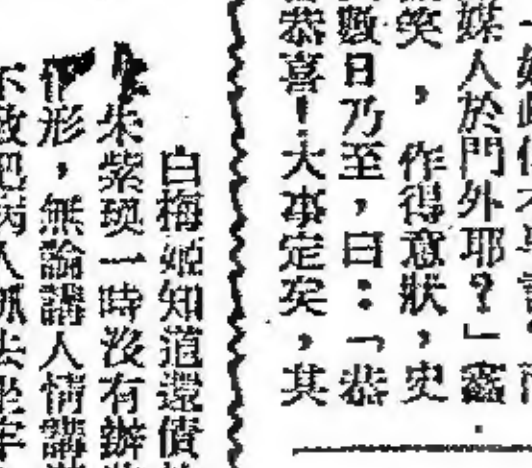 媒人於門外耶？」
笑，作得意狀，史
數日乃至，曰：「恭
恭喜！大事定矣，其
白梅姬知道還債
朱紫瑛一時沒有辦
形，無論講人情講
不敢把病人抓去坐牢